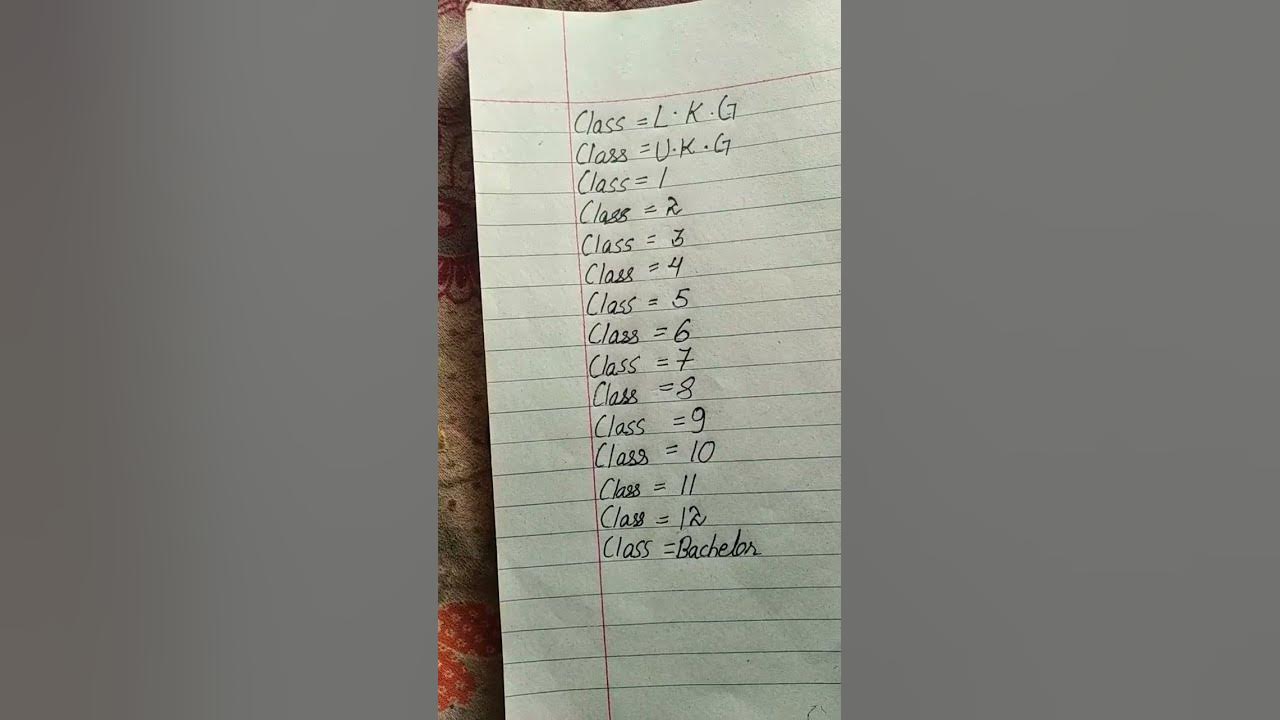 Class = L.K.G
Class = U.K.G
Class = 1
Class = 2
Class = 3
Class = 4
Class = 5
Class = 6
Class = 7
Class = 8
Class = 9
Class = 10
Class = 11
Class = 12
Class = Bachelor